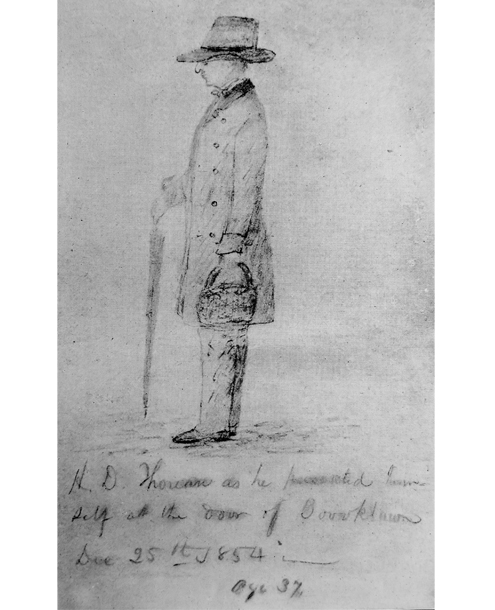 H. D. Thoreau as he presented him-
self at the door of Brooklawn
Dec 25th 1854
Age 37